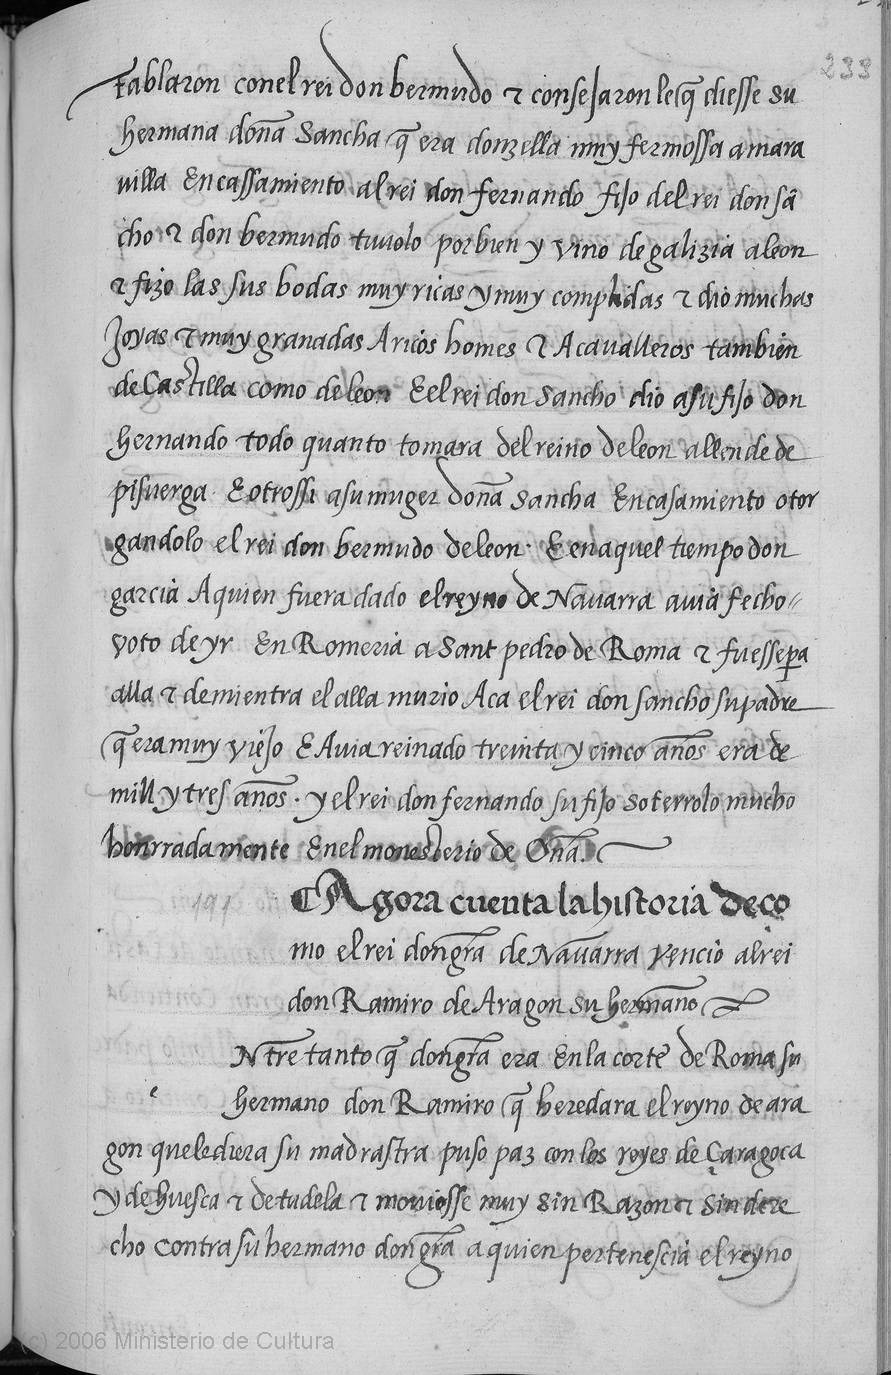 233
fablaron conel rei don bermudo τ consejaron le q̃ diesse su
hermana doña Sancha q̃ era donzella muy fermossa a mara
villa En cassamiento al rei don fernando fijo del rei don sã
cho τ don bermudo tuuolo por bien y vino de galizia a leon
τ fizo las sus bodas muy ricas y muy complidas τ dio muchas
Joyas τ muy granadas A ricos homes τ A caualleros tambien
de Castilla como de leon E el rei don Sancho dio a su fijo don
hernando todo quanto tomara del reino de leon allende de
pisuerga E otrossi a su muger doña Sancha En casamiento otor
gandolo el rei don bermudo de leon · E en aquel tiempo don
garcia A quien fuera dado el reyno de Nauarra auia fecho
voto de yr En Romeria a Sant pedro de Roma τ fuesse pa
alla τ de mientra el alla murio Aca el rei don sancho su padre
q̃ era muy viejo E Auia reinado treinta y cinco años era de
mill y tres años · y el rei don fernando su fijo soterrolo mucho
honrrada mente En el monesterio de Oña.
191 Agora cuenta la historia de co
mo el rei don gr̃a de Nauarra vencio al rei
don Ramiro de Aragon su hermano
e Ntre tanto q̃ don gr̃a era En la corte de Roma su
hermano don Ramiro q̃ heredara el reyno de ara
gon que le diera su madrastra puso paz con los reyes de Çaragoca
y de huesca τ de tudela τ mouiosse muy sin Razon τ sin dere
cho contra su hermano don gr̃a a quien pertenescia el reyno
(c) 2006 Ministerio de Cultura